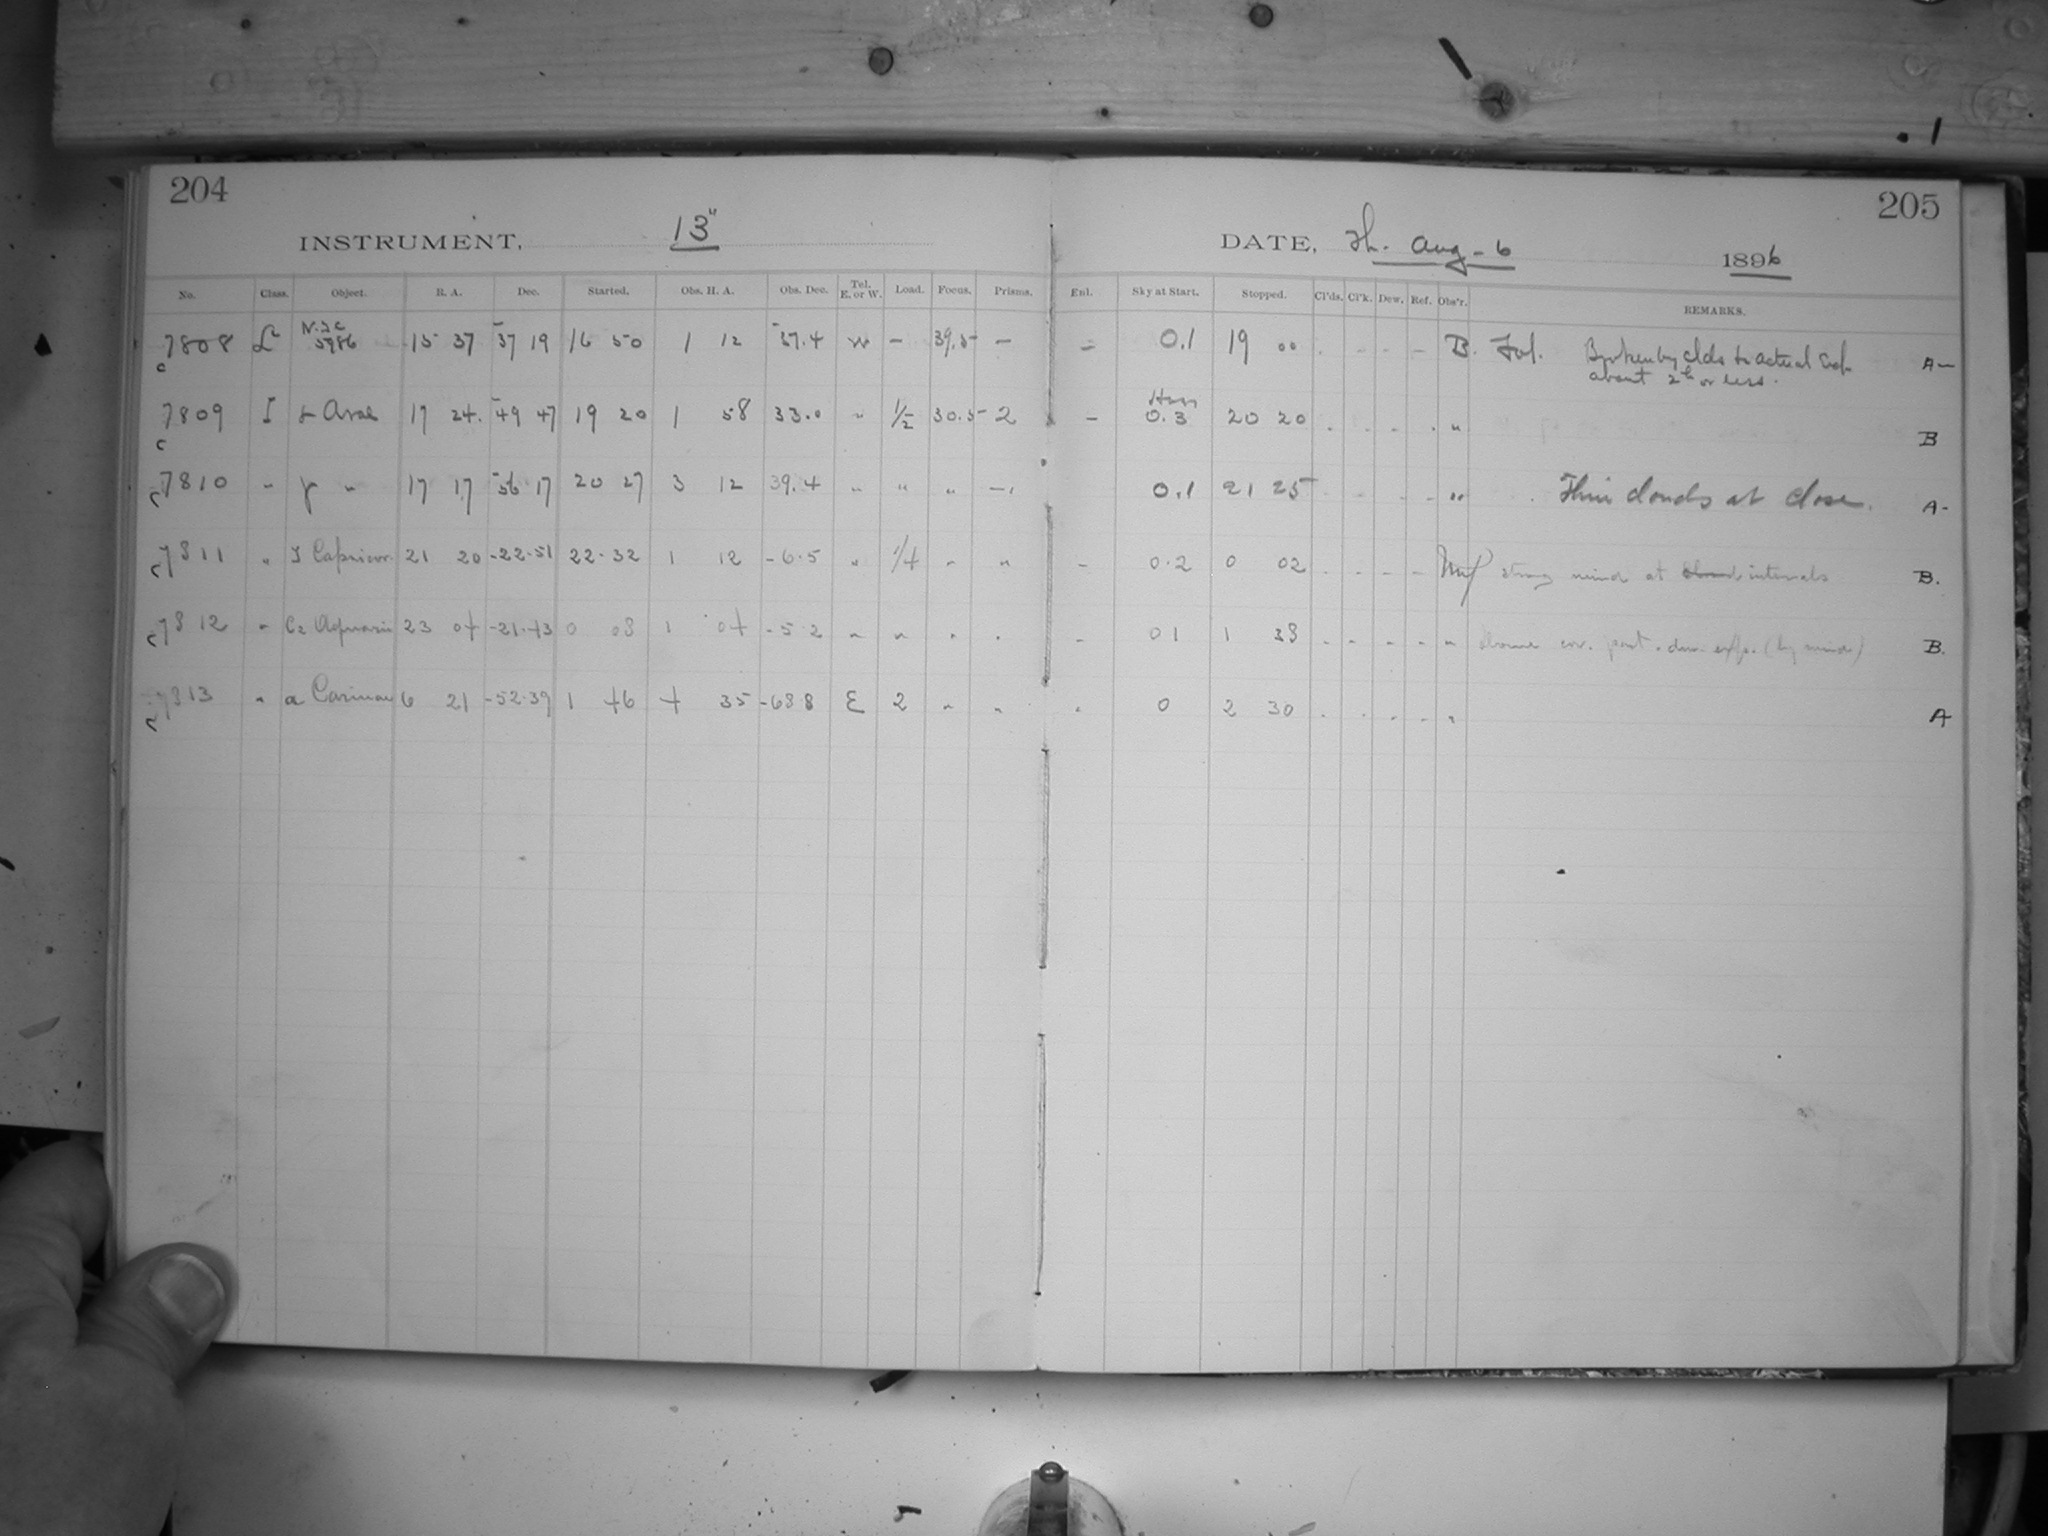 204
205
INSTRUMENT, 13"
DATE, Th. Aug - 6 1896
No. Class. Object. R. A. Dec. Started. Obs. H. A. Obs. Dec. Tel. E. or W. Load. Focus. Prisms. Enl. Sky at Start. Stopped. Cl'ds. Cl'k. Dew. Ref. Obs'r. REMARKS.
7808 N.G.C 5986 15 37 -37 19 16 50 1 12 -37.4 W - 39.5 - - 0.1 19 00 B. Broken by clds to actual A-
c about 2h or less.
7809 I Arae 17 24. -49 47 19 20 1 58 33.0 " 1/2 30.5 2 - 0.3 20 20 " B
c
7810 " γ " 17 17 -56 17 20 27 3 12 39.4 " " " 0.1 21 25 " Thin clouds at close. A-
c
7811 " Capricor. 21 20 -22.51 22.32 1 12 -6.5 " 1/4 " " - 0.2 0 02 strong wind at intervals B.
c
7812 " C2 Aquarii 23 04 -21.43 0 08 1 04 -5.2 " " " " - 0 1 1 38 " B.
c
7813 " a Carinae 6 21 -52.39 1 46 4 35 -68.8 E 2 " " " 0 2 30 " A
c